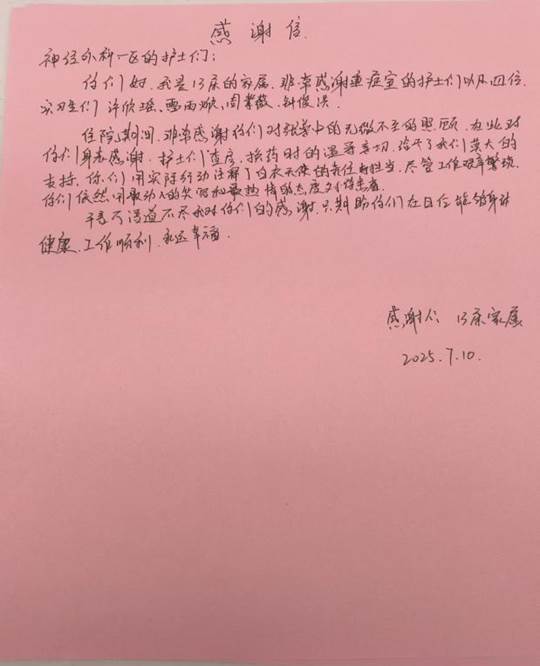 感谢信
神经外科一区的护士们：
你们好，我是13床的家属，非常感谢重症室的护士们以及四位
实习生们 许欣瑶、
住院期间，非常感谢你们对我家中的无微不至的照顾，在此对
你们身表感谢，护士们查房，换药时的温馨亲切，给予了我们莫大的
支持，你们用实际行动注释了白衣天使的责任与担当，尽管工作艰辛繁琐，
你们依然用最动人的笑容和最热情的态度对待患者。
千言万语道不尽我对你们的感谢，只期盼你们在日后能够身体
健康、工作顺利，永远幸福。
感谢人 13床家属
2025.7.10.